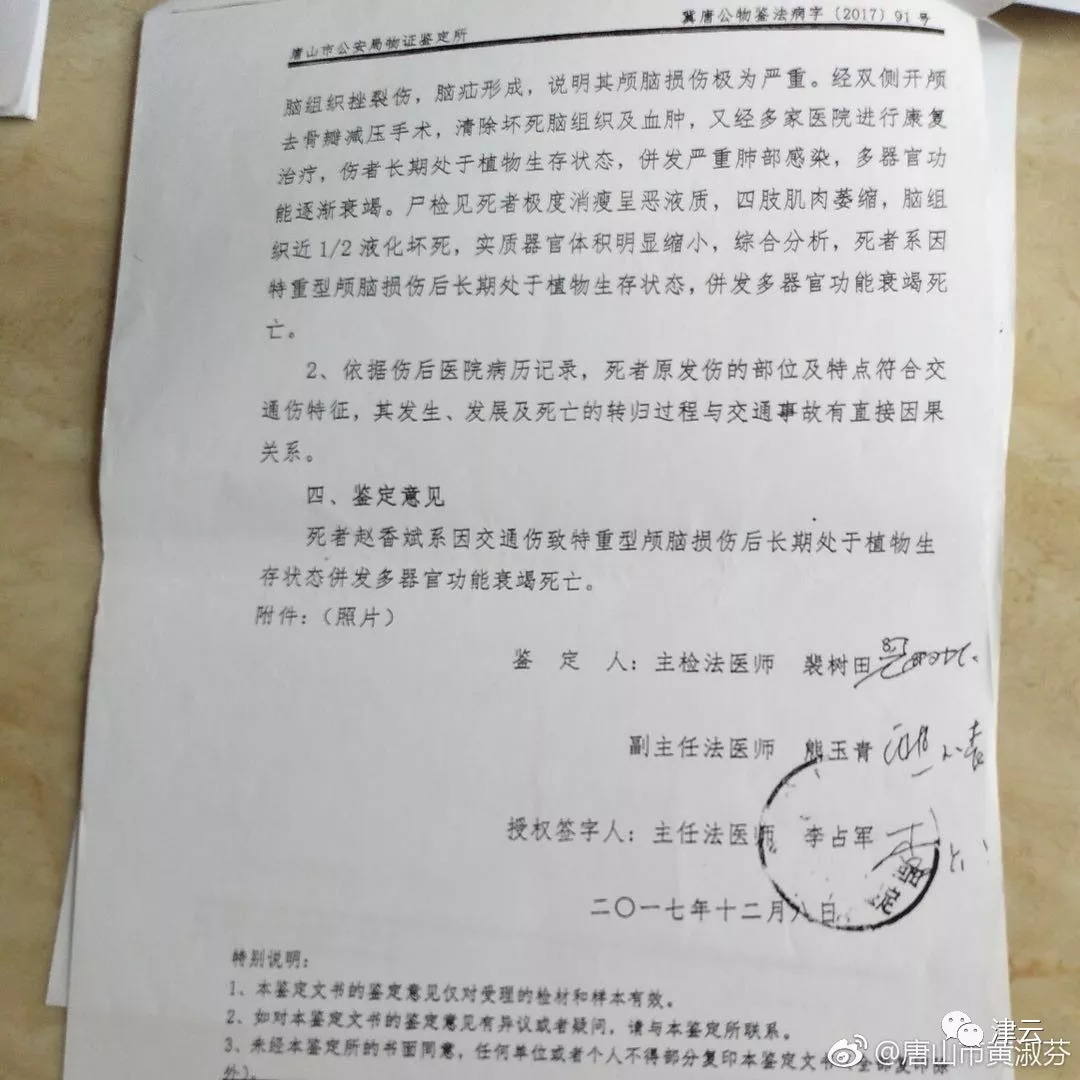 唐山市公安局物证鉴定所
冀唐公物鉴法病字（2017）91 号
脑组织挫裂伤，脑疝形成，说明其颅脑损伤极为严重。经双侧开颅
去骨瓣减压手术，清除坏死脑组织及血肿，又经多家医院进行康复
治疗，伤者长期处于植物生存状态，併发严重肺部感染，多器官功
能逐渐衰竭。尸检见死者极度消瘦呈恶液质，四肢肌肉萎缩，脑组
织近 1/2 液化坏死，实质器官体积明显缩小，综合分析，死者系因
特重型颅脑损伤后长期处于植物生存状态，併发多器官功能衰竭死
亡。
2、依据伤后医院病历记录，死者原发伤的部位及特点符合交
通伤特征，其发生、发展及死亡的转归过程与交通事故有直接因果
关系。
四、鉴定意见
死者赵香斌系因交通伤致特重型颅脑损伤后长期处于植物生
存状态併发多器官功能衰竭死亡。
附件：（照片）
鉴 定 人：主检法医师 裴树田
副主任法医师 熊玉青
授权签字人：主任法医师 李占军
二〇一七年十二月八日
特别说明：
1、本鉴定文书的鉴定意见仅对受理的检材和样本有效。
2、如对本鉴定文书的鉴定意见有异议或者疑问，请与本鉴定所联系。
3、未经本鉴定所的书面同意，任何单位或者个人不得部分复印本鉴定文书
外）。
津云
@唐山市黄淑芬